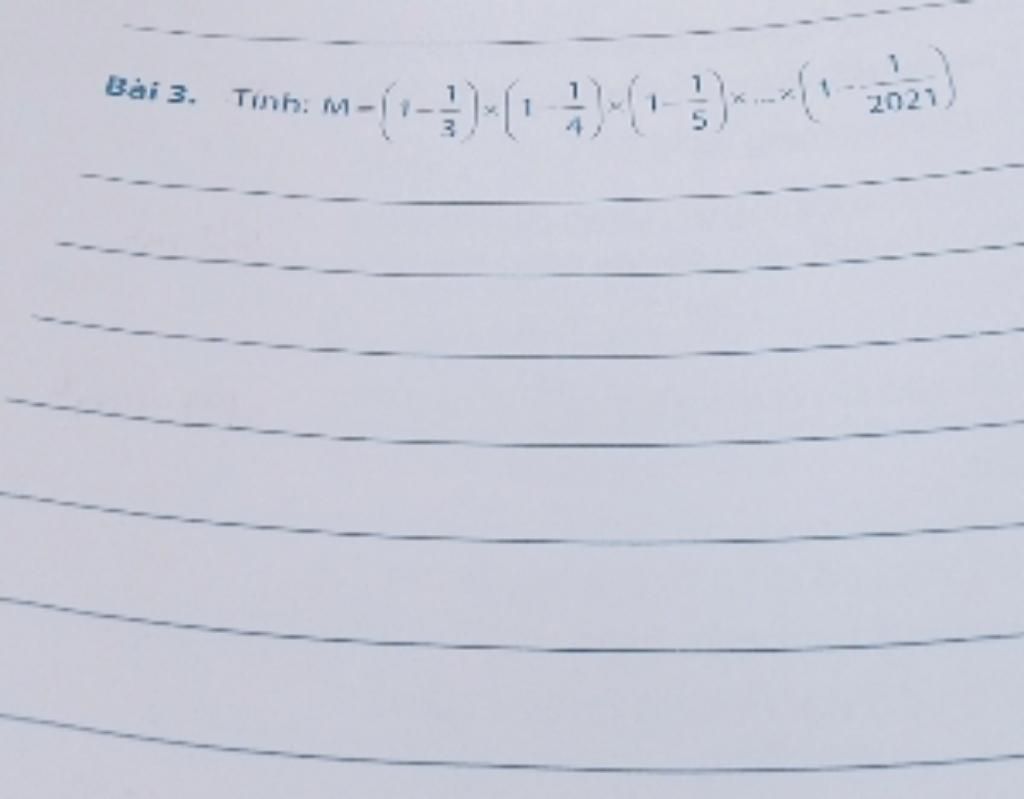 Bài 3. Tính: M = (1 - 1/3) × (1 - 1/4) × (1 - 1/5) × ... × (1 - 1/2021)